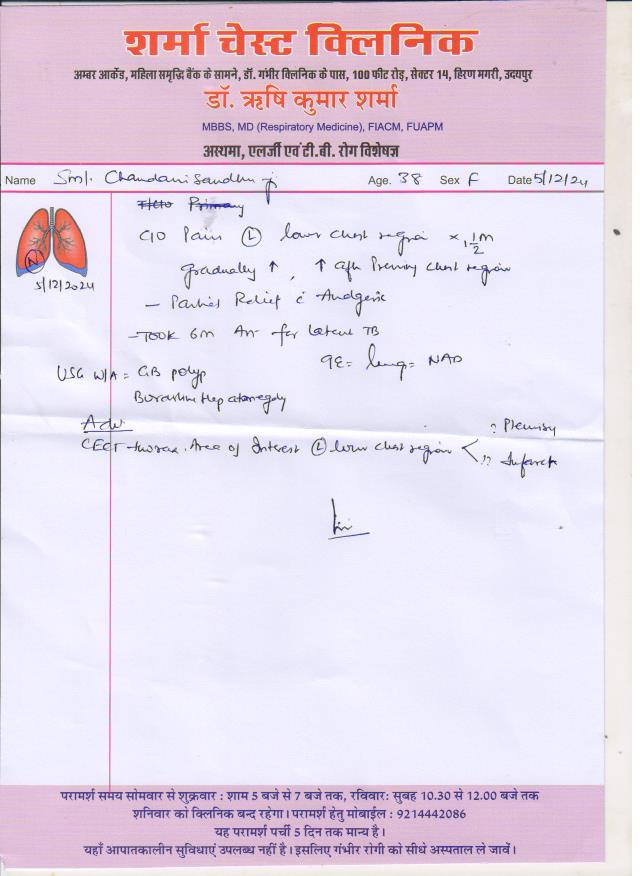 शर्मा चेस्ट क्लिनिक
अम्बर आर्केड, महिला समृद्धि बैंक के सामने, डॉ. गंभीर क्लिनिक के पास, 100 फीट रोड़, सेक्टर 14, हिरण मगरी, उदयपुर
डॉ. ऋषि कुमार शर्मा
MBBS, MD (Respiratory Medicine), FIACM, FUAPM
अस्थमा, एलर्जी एवं टी.बी. रोग विशेषज्ञ
Name Smt. Chandani Sandhu Age. 38 Sex F Date 5/12/24
Primary
C/O Pain (L) lower chest region × 1 1/2 m
gradually ↑, ↑ after Pressing chest region
N
5/12/2024
- Partial Relief c̄ Analgesic
- Took 6m for Latent TB
O/E = lung = NAD
USG W/A = GB polyp
Borderline Hepatomegaly
Adv
CECT - thorax. Area of Interest (L) lower chest region < ? Pleurisy
?? Infarct
परामर्श समय सोमवार से शुक्रवार : शाम 5 बजे से 7 बजे तक, रविवार: सुबह 10.30 से 12.00 बजे तक
शनिवार को क्लिनिक बन्द रहेगा। परामर्श हेतु मोबाईल : 9214442086
यह परामर्श पर्ची 5 दिन तक मान्य है।
यहाँ आपातकालीन सुविधाएं उपलब्ध नहीं है। इसलिए गंभीर रोगी को सीधे अस्पताल ले जावें।